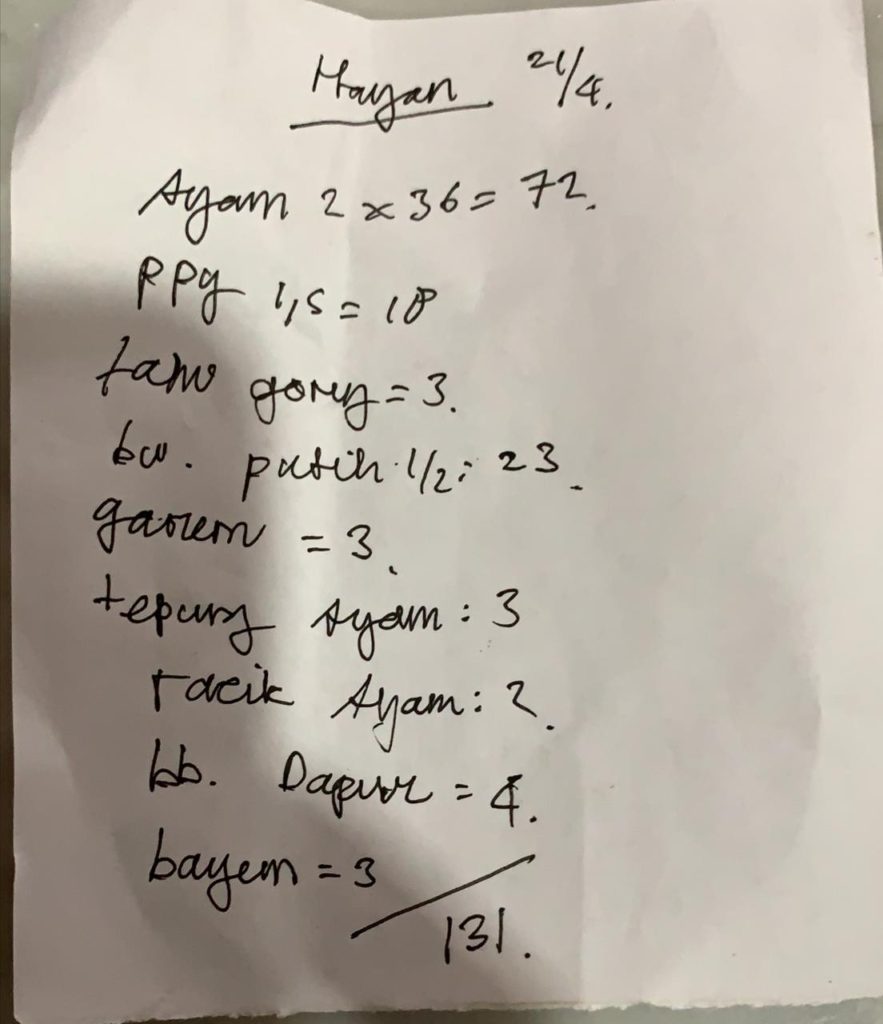 Hayan 21/4.
Ayam 2 x 36 = 72.
PPg 1,5 = 18
tahu goreng = 3.
bw. putih 1/2 : 23.
garem = 3.
tepung Ayam : 3
racik Ayam : 2.
bb. Dapur = 4.
bayem = 3
131.